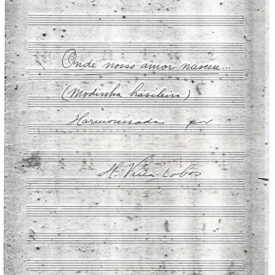 Onde nosso amor nasceu...
(Modinha brasileira)
Harmonisada por
H. Villa-Lobos